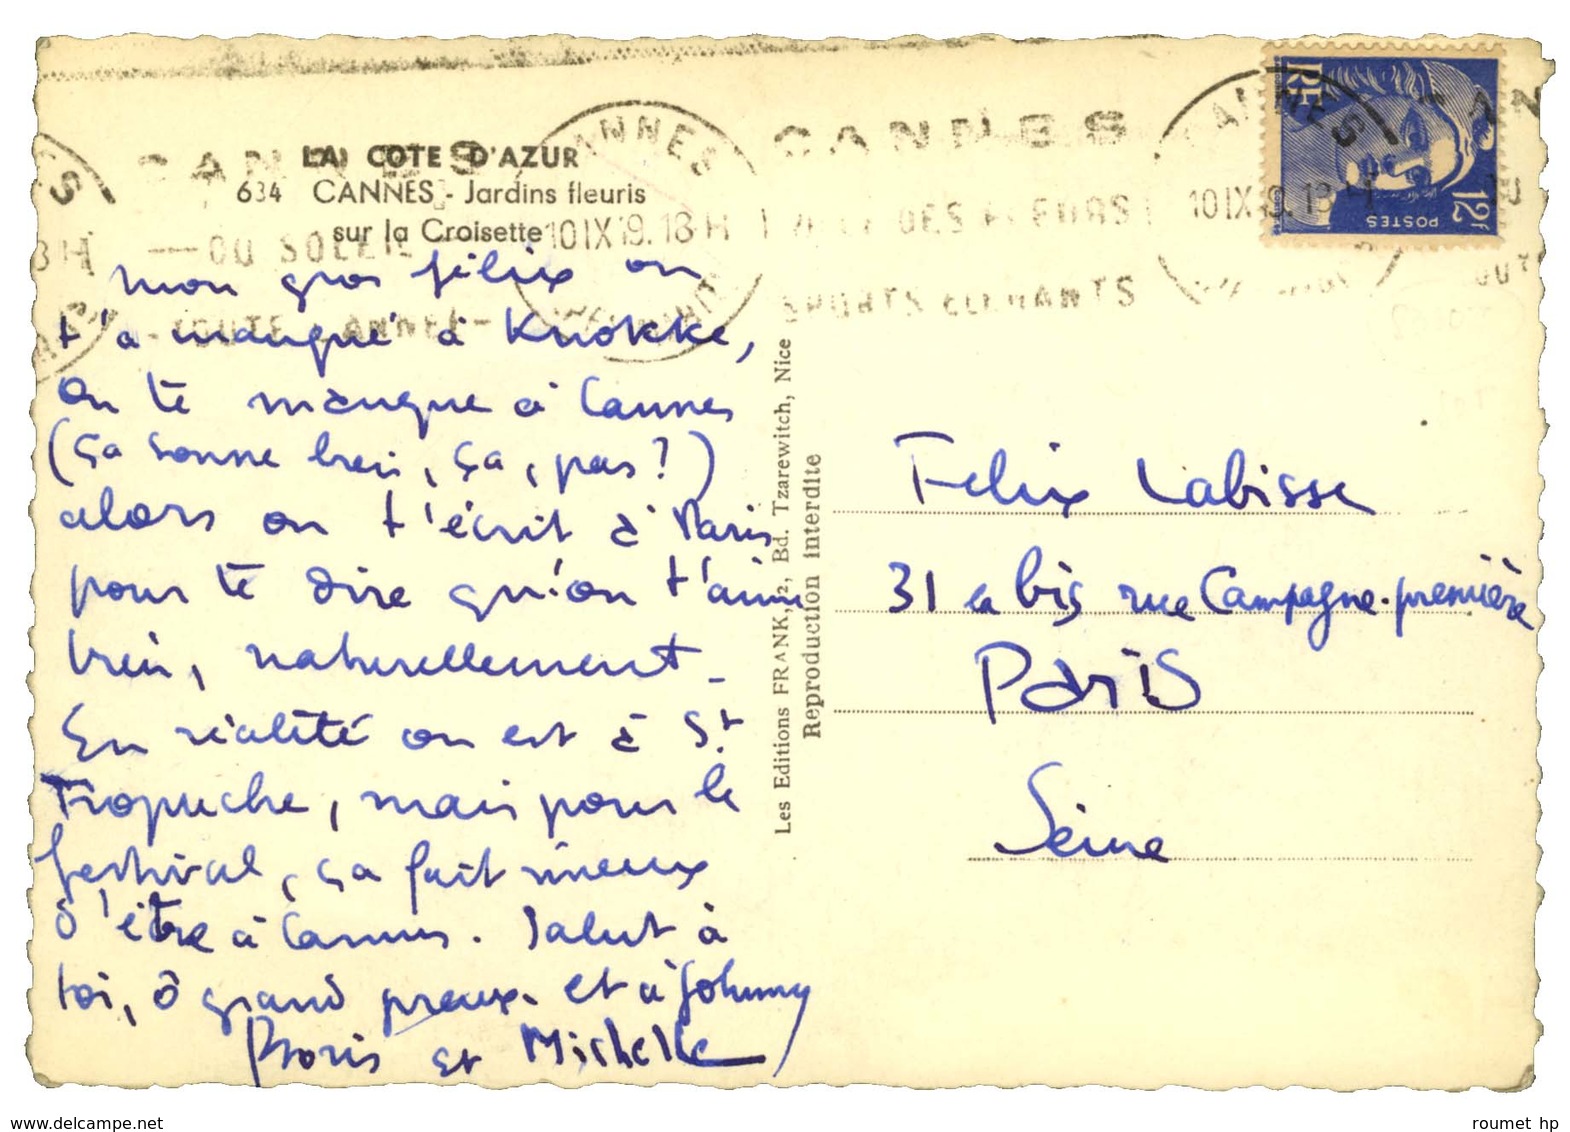 LA COTE D'AZUR
634 CANNES - Jardins fleuris
sur la Croisette
CANNES
DU SOLEIL
TOUTE L'ANNEE
CANNES
10 IX 19. 18 H
CANNES
VILLE DES FLEURS
SPORTS ELEGANTS
CANNES
10 IX 19. 18 H
RF
POSTES
12F
mon gros félix on
t'a manqué à Knokke,
on te manque à Cannes
(ça sonne bien, ça, pas ?)
alors on t'écrit à Paris
pour te dire qu'on t'aime
bien, naturellement -
En réalité on est à St
Tropuche, mais pour le
festival, ça fait mieux
d'être à Cannes. Salut à
toi, ô grand preux. et à Johnny
Boris et Michelle
Les Editions FRANK, 2, Bd. Tzarewitch, Nice
Reproduction interdite
Felix Labisse
31 bis rue Campagne-première
Paris
Seine
www.delcampe.net
roumet hp